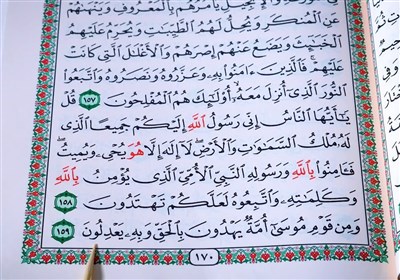 وَٱلْإِنجِيلِ يَأْمُرُهُم بِٱلْمَعْرُوفِ وَيَنْهَىٰهُمْ
عَنِ ٱلْمُنكَرِ وَيُحِلُّ لَهُمُ ٱلطَّيِّبَٰتِ وَيُحَرِّمُ عَلَيْهِمُ
ٱلْخَبَٰٓئِثَ وَيَضَعُ عَنْهُمْ إِصْرَهُمْ وَٱلْأَغْلَٰلَ ٱلَّتِى كَانَتْ
عَلَيْهِمْ ۚ فَٱلَّذِينَ ءَامَنُوا۟ بِهِۦ وَعَزَّرُوهُ وَنَصَرُوهُ وَٱتَّبَعُوا۟
ٱلنُّورَ ٱلَّذِىٓ أُنزِلَ مَعَهُۥٓ ۙ أُو۟لَٰٓئِكَ هُمُ ٱلْمُفْلِحُونَ ١٥٧ قُلْ
يَٰٓأَيُّهَا ٱلنَّاسُ إِنِّى رَسُولُ ٱللَّهِ إِلَيْكُمْ جَمِيعًا ٱلَّذِى
لَهُۥ مُلْكُ ٱلسَّمَٰوَٰتِ وَٱلْأَرْضِ ۖ لَآ إِلَٰهَ إِلَّا هُوَ يُحْىِۦ وَيُمِيتُ ۖ
فَـَٔامِنُوا۟ بِٱللَّهِ وَرَسُولِهِ ٱلنَّبِىِّ ٱلْأُمِّىِّ ٱلَّذِى يُؤْمِنُ بِٱللَّهِ
وَكَلِمَٰتِهِۦ وَٱتَّبِعُوهُ لَعَلَّكُمْ تَهْتَدُونَ ١٥٨
وَمِن قَوْمِ مُوسَىٰٓ أُمَّةٌ يَهْدُونَ بِٱلْحَقِّ وَبِهِۦ يَعْدِلُونَ ١٥٩
١٧٠